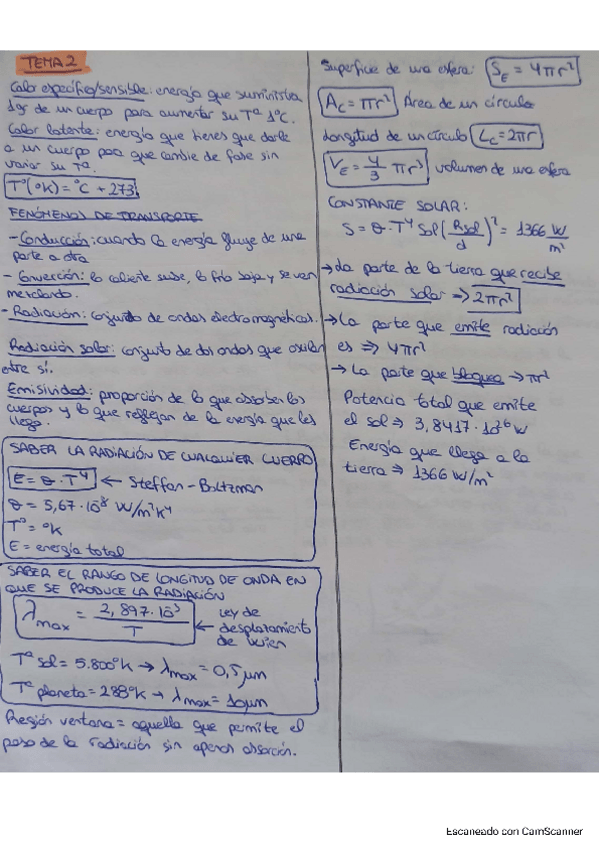 TEMA 2
Calor específico/sensible: energía que suministra
das de un cuerpo para aumentar su Tª 1ºC.
Calor latente: energía que tienes que darle
a un cuerpo para que cambie de fase sin
variar su Tª.
Tª(ºK) = ºC + 273
FENÓMENOS DE TRANSPORTE
- Conducción: cuando la energía fluye de una
parte a otra
- Convección: lo caliente sube, lo frío baja y se van
mezclando.
- Radiación: conjunto de ondas electromagnéticas.
Radiación solar: conjunto de dos ondas que oscilan
entre sí.
Emisividad: proporción de lo que absorben los
cuerpos y lo que reflejan de la energía que les
llega.
SABER LA RADIACIÓN DE CUALQUIER CUERPO
E = θ · T⁴ ← Steffan-Boltzman
θ = 5,67 · 10⁸ W/m²K⁴
Tª = ºK
E = energía total
SABER EL RANGO DE LONGITUD DE ONDA EN
QUE SE PRODUCE LA RADIACIÓN
λmax = 2,897 · 10³ / T ← Ley de
desplazamiento
de Wien
Tª sol = 5.800ºK → λmax = 0,5 μm
Tª planeta = 288ºK → λmax = 10 μm
Región ventana = aquella que permite el
paso de la radiación sin apenas absorción.
Superficie de una esfera: SE = 4πr²
AC = πr² Área de un círculo
Longitud de un círculo LC = 2πr
VE = 4/3 πr³ volumen de una esfera
CONSTANTE SOLAR:
S = θ · T⁴ Sol (Rsol/d)² = 1366 W/m²
→ La parte de la tierra que recibe
radiación solar → 2πr²
→ La parte que emite radiación
es ⇒ 4πr²
→ La parte que bloquea → πr²
Potencia total que emite
el sol ⇒ 3,8417 · 10²⁶ W
Energía que llega a la
tierra ⇒ 1366 W/m²
Escaneado con CamScanner